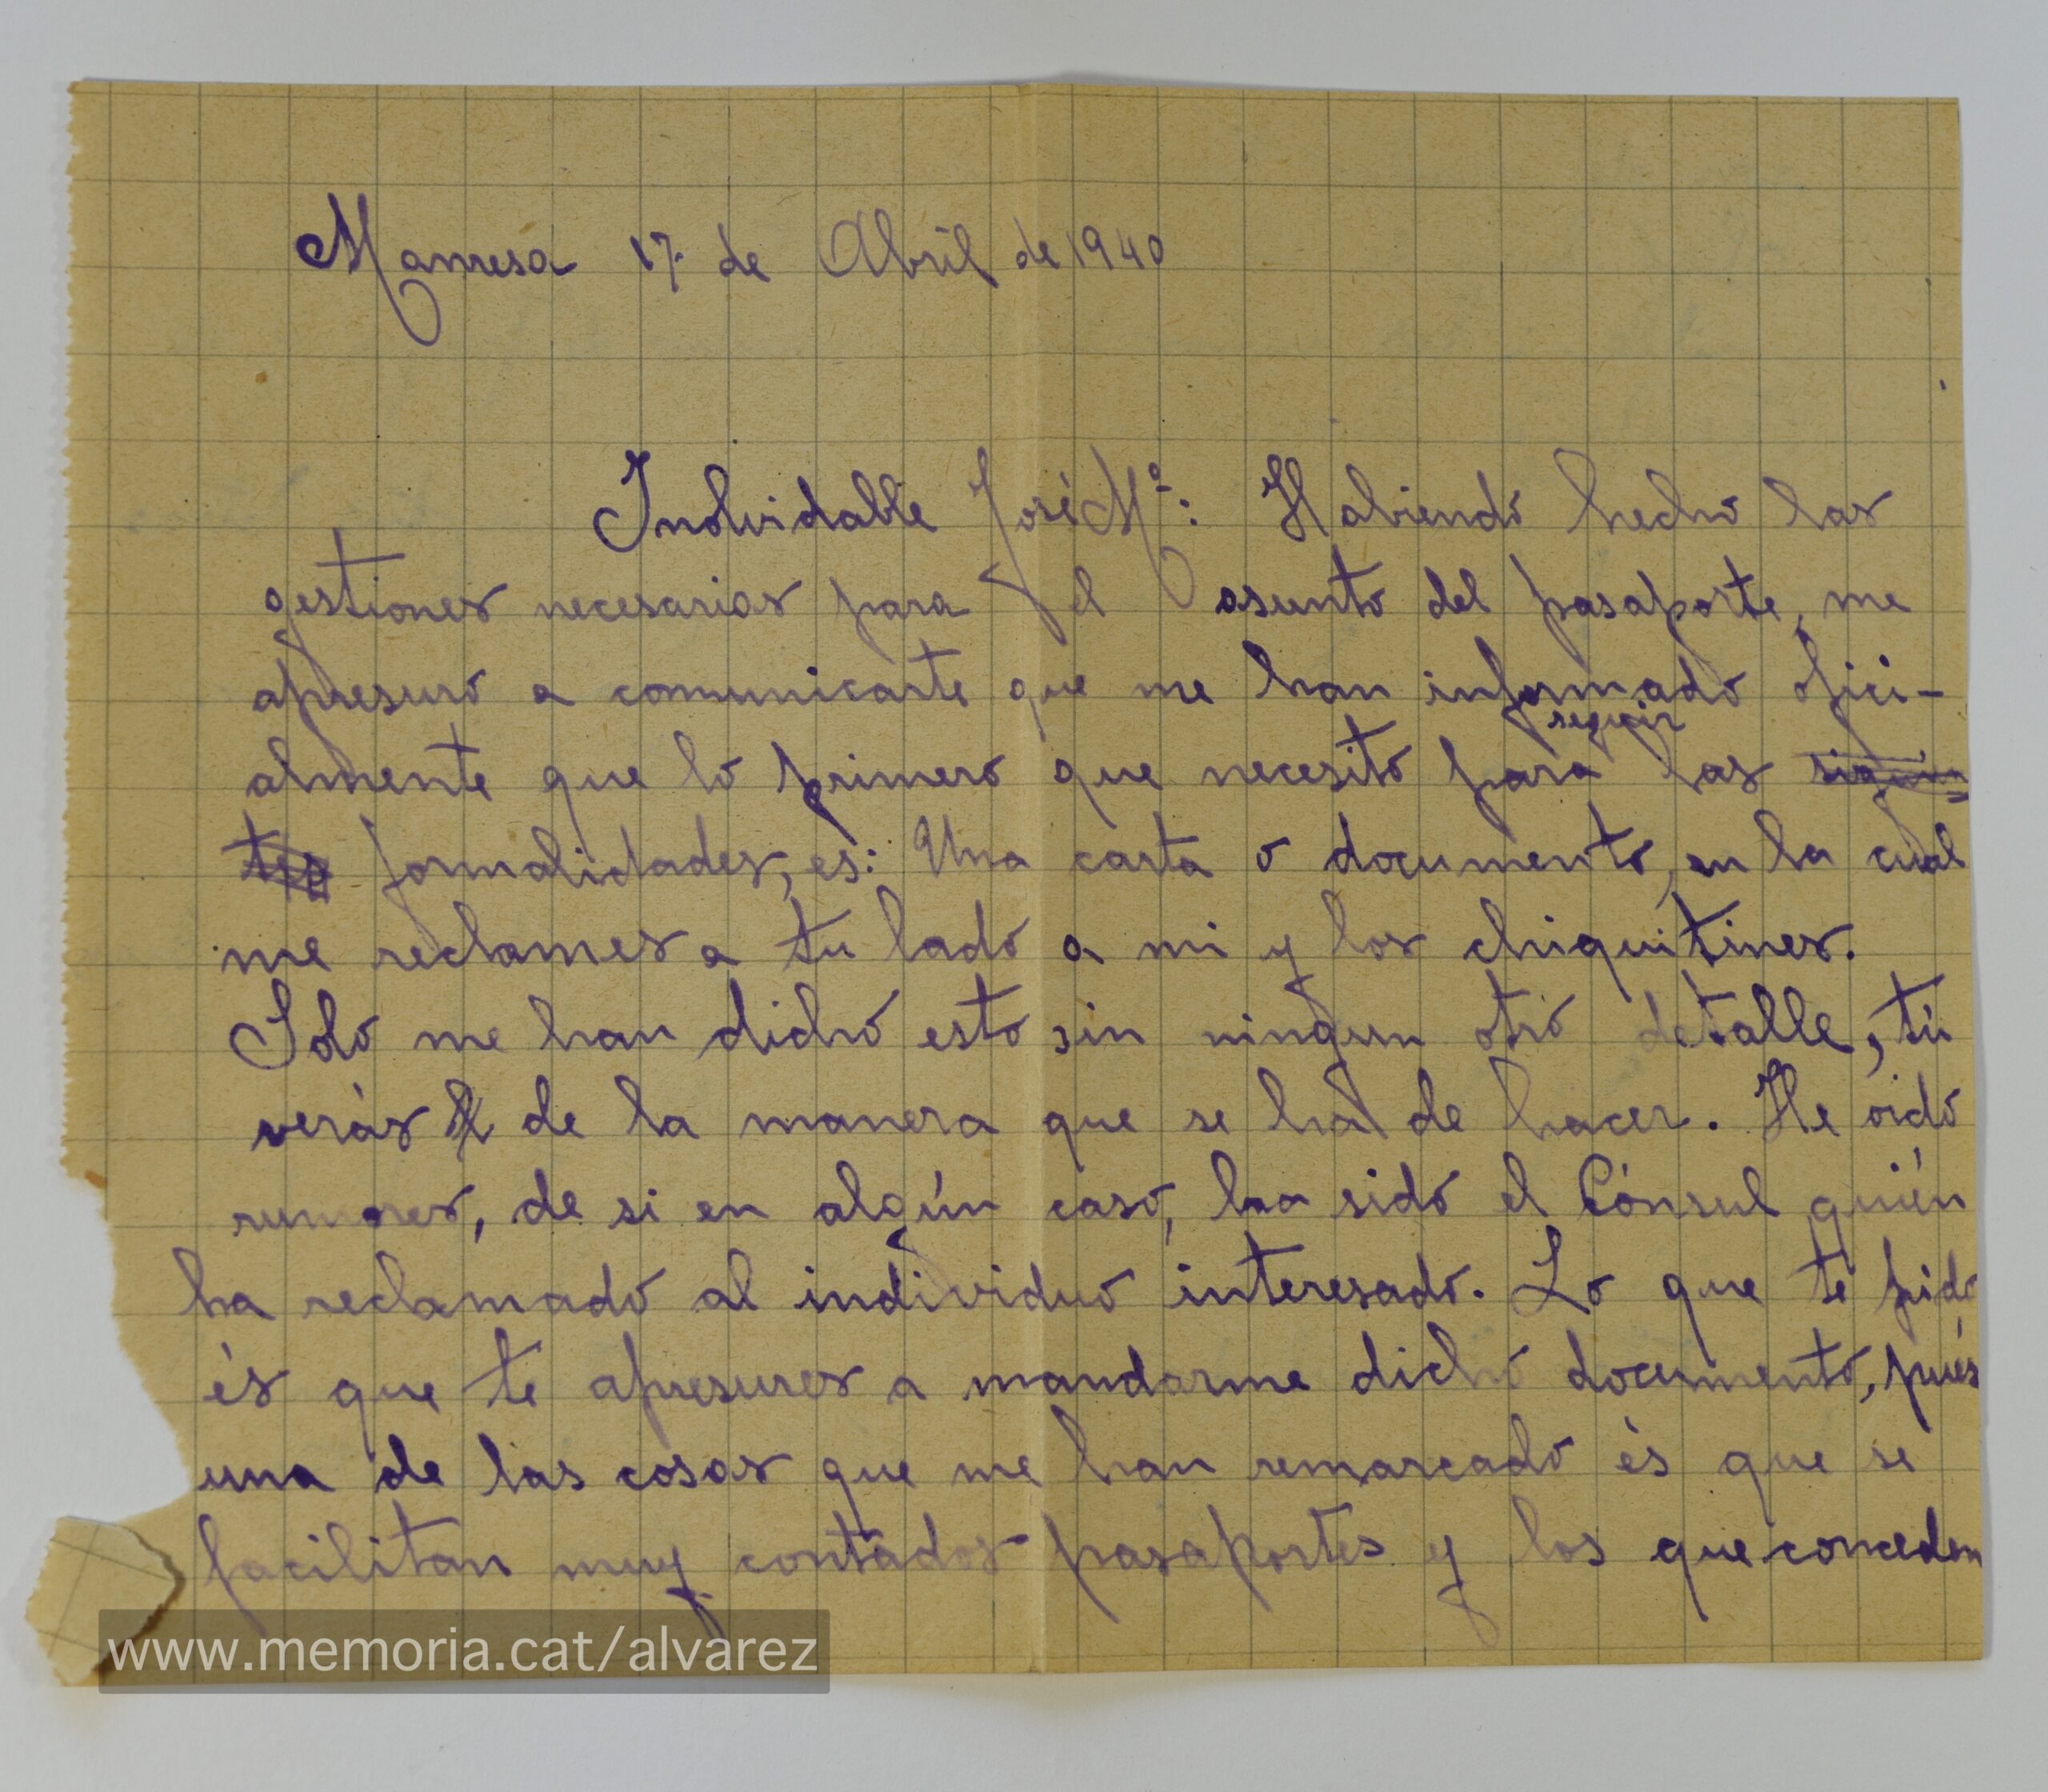 Manresa 17 de Abril de 1940
Inolvidable José Mª: Habiendo hecho las
gestiones necesarias para el asunto del pasaporte, me
apresuro a comunicarte que me han informado ofici-
seguir
almente que lo primero que necesito para las siguien
tes formalidades, es: Una carta o documento, en la cual
me reclames a tu lado a mi y los chiquitines.
Solo me han dicho esto sin ningun otro detalle, tú
verás de la manera que se ha de hacer. He oido
rumores, de si en algún caso, ha sido el Cónsul quién
ha reclamado al individuo interesado. Lo que te pido
és que te apresures a mandarme dicho documento, pués
una de las cosas que me han remarcado és que se
facilitan muy contados pasaportes y los que conceden
www.memoria.cat/alvarez